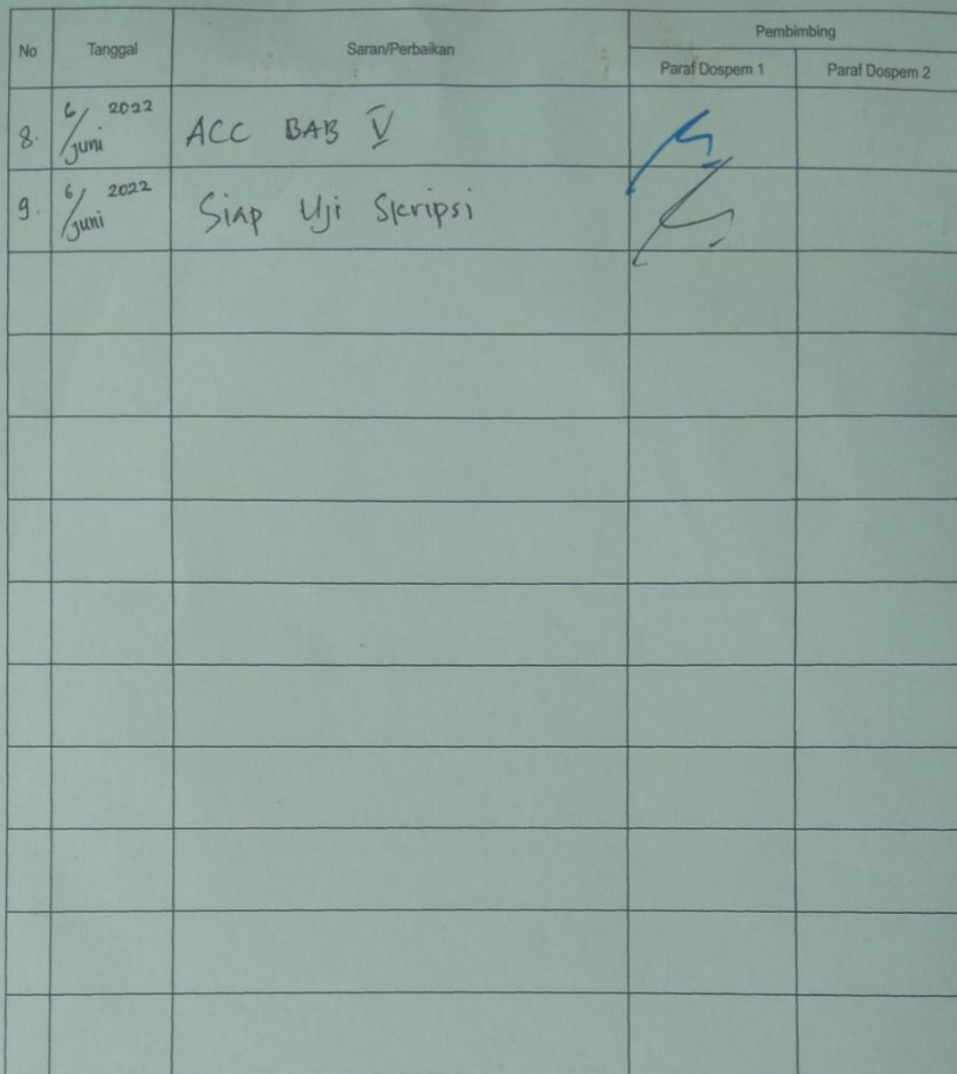 No Tanggal Saran/Perbaikan Pembimbing
Paraf Dospem 1 Paraf Dospem 2
8. 6/juni 2022 ACC BAB V
9. 6/juni 2022 Siap Uji Skripsi